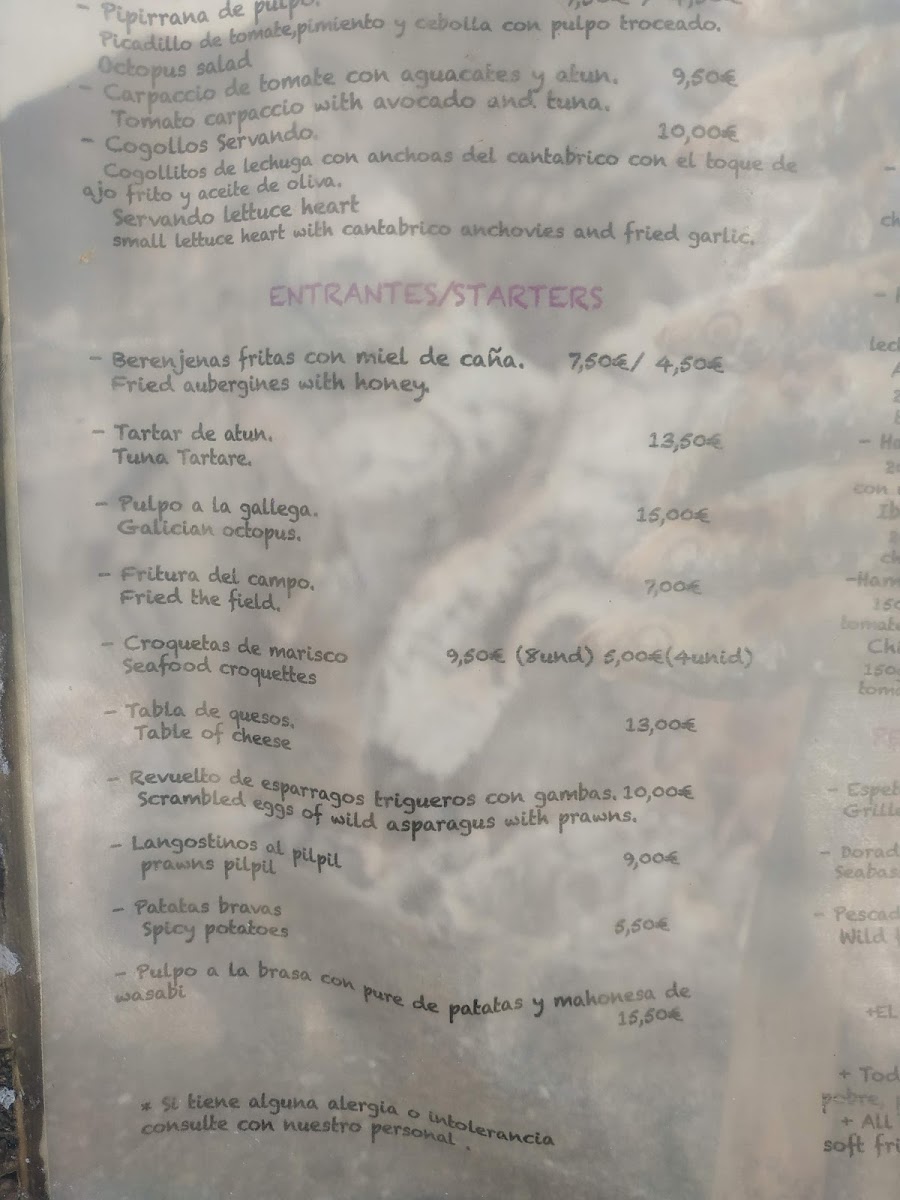 - Pipirrana de pulpo.
Picadillo de tomate,pimiento y cebolla con pulpo troceado.
Octopus salad
- Carpaccio de tomate con aguacates y atun. 9,50€
Tomato carpaccio with avocado and tuna.
- Cogollos Servando. 10,00€
Cogollitos de lechuga con anchoas del cantabrico con el toque de
ajo frito y aceite de oliva.
Servando lettuce heart
small lettuce heart with cantabrico anchovies and fried garlic.
ENTRANTES/STARTERS
- Berenjenas fritas con miel de caña. 7,50€/ 4,50€
Fried aubergines with honey.
- Tartar de atun. 13,50€
Tuna Tartare.
- Pulpo a la gallega. 15,00€
Galician octopus.
- Fritura del campo. 7,00€
Fried the field.
- Croquetas de marisco 9,50€ (8und) 5,00€(4unid)
Seafood croquettes
- Tabla de quesos. 13,00€
Table of cheese
- Revuelto de esparragos trigueros con gambas. 10,00€
Scrambled eggs of wild asparagus with prawns.
- Langostinos al pilpil 9,00€
prawns pilpil
- Patatas bravas 5,50€
Spicy potatoes
- Pulpo a la brasa con pure de patatas y mahonesa de
wasabi 15,50€
* Si tiene alguna alergia o intolerancia
consulte con nuestro personal.
con
150
- Espet
Grill
- Dorad
Seabas
- Pescad
Wild
+EL
+ Tod
pobre,
+ All
soft fri